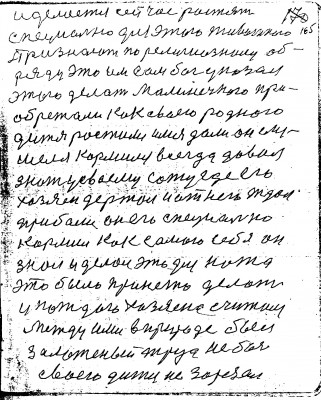 и делается сей час растят
170
специално для этого животного 165
Признают по религиозному об-
ряду это им сам бог указал
этого делат маличького при-
обретали как своего родного
дитя ростили имя дали он
кормили всегда давал
знат усвоему где его
хозяин держал и от него ждал
прибали он его специално
кормил как самого себя он
знал и делал это для ножа
это было принето делат
и каждого хозяена считали
между ими в природе был
заложеный труд не боя
своего дитя не зарезал